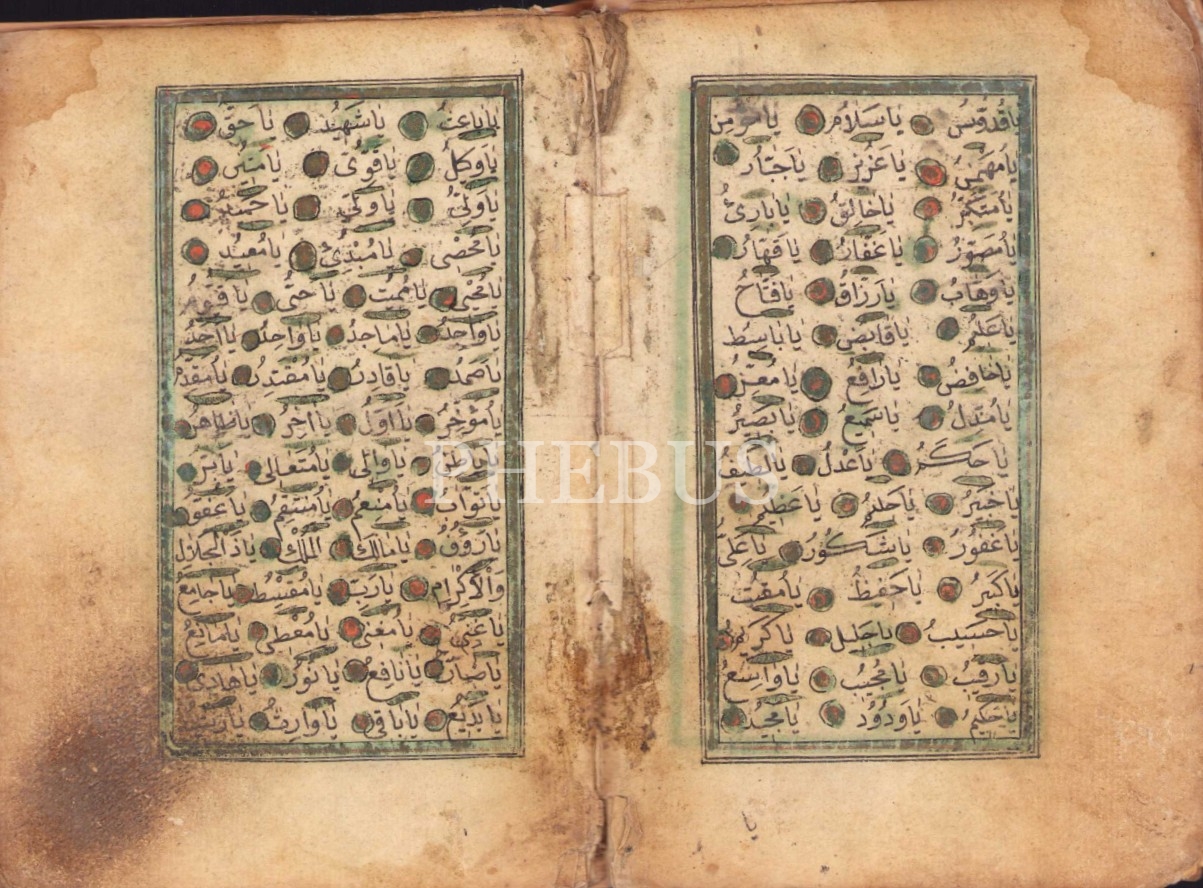 ياقُدّوُسُ ياسَلاَمُ يامُؤمِنُ
يامُهَيْمِنُ ياعَزيزُ ياجَبّارُ
يامُتَكَبِّرُ ياخالِقُ يابارِئُ
يامُصَوِّرُ ياغَفّارُ ياقَهّارُ
ياوَهّابُ يارَزّاقُ يافَتّاحُ
ياعَليمُ ياقابِضُ ياباسِطُ
ياخافِضُ يارافِعُ يامُعِزُّ
يامُذِلُّ ياسَميعُ يابَصيرُ
ياحَكَمُ ياعَدْلُ يالَطيفُ
ياخَبيرُ ياحَليمُ ياعَظيمُ
ياغَفُورُ ياشَكُورُ ياعَلِيُّ
ياكَبيرُ ياحَفيظُ يامُقيتُ
ياحَسيبُ ياجَليلُ ياكَريمُ
يارَقيبُ يامُجيبُ ياواسِعُ
ياحَكيمُ ياوَدُودُ يامَجيدُ
يا
ياباعِثُ ياشَهيدُ ياحَقُّ
ياوَكيلُ ياقَوِىُّ يامَتينُ
ياوَلِىُّ ياوَلِىُّ ياحَميدُ
يامُحْصِى يامُبْدِئُ يامُعيدُ
يامُحْيِى يامُميتُ ياحَىُّ ياقَيّومُ
ياواجِدُ ياماجِدُ ياواحِدُ يااَحَدُ
ياصَمَدُ ياقادِرُ يامُقْتَدِرُ يامُقَدِّمُ
يامُؤَخِّرُ يااَوَّلُ يااخِرُ ياظاهِرُ
ياباطِنُ ياوالِى يامُتَعالِى يابَرُّ
ياتَوّابُ يامُنْعِمُ يامُنْتَقِمُ ياعَفُوُّ
يارَؤُفُ يامالِكَ المُلْكِ ياذَالْجَلالِ
وَالْاِكْرامِ يارَبِّ يامُقْسِطُ ياجامِعُ
ياغَنِىُّ يامُغْنِى يامُعْطِى يامانِعُ
ياضارُّ يانافِعُ يانُورُ ياهادِى
يابَديعُ ياباقِى ياوارِثُ يارَشيدُ
PHEBUS